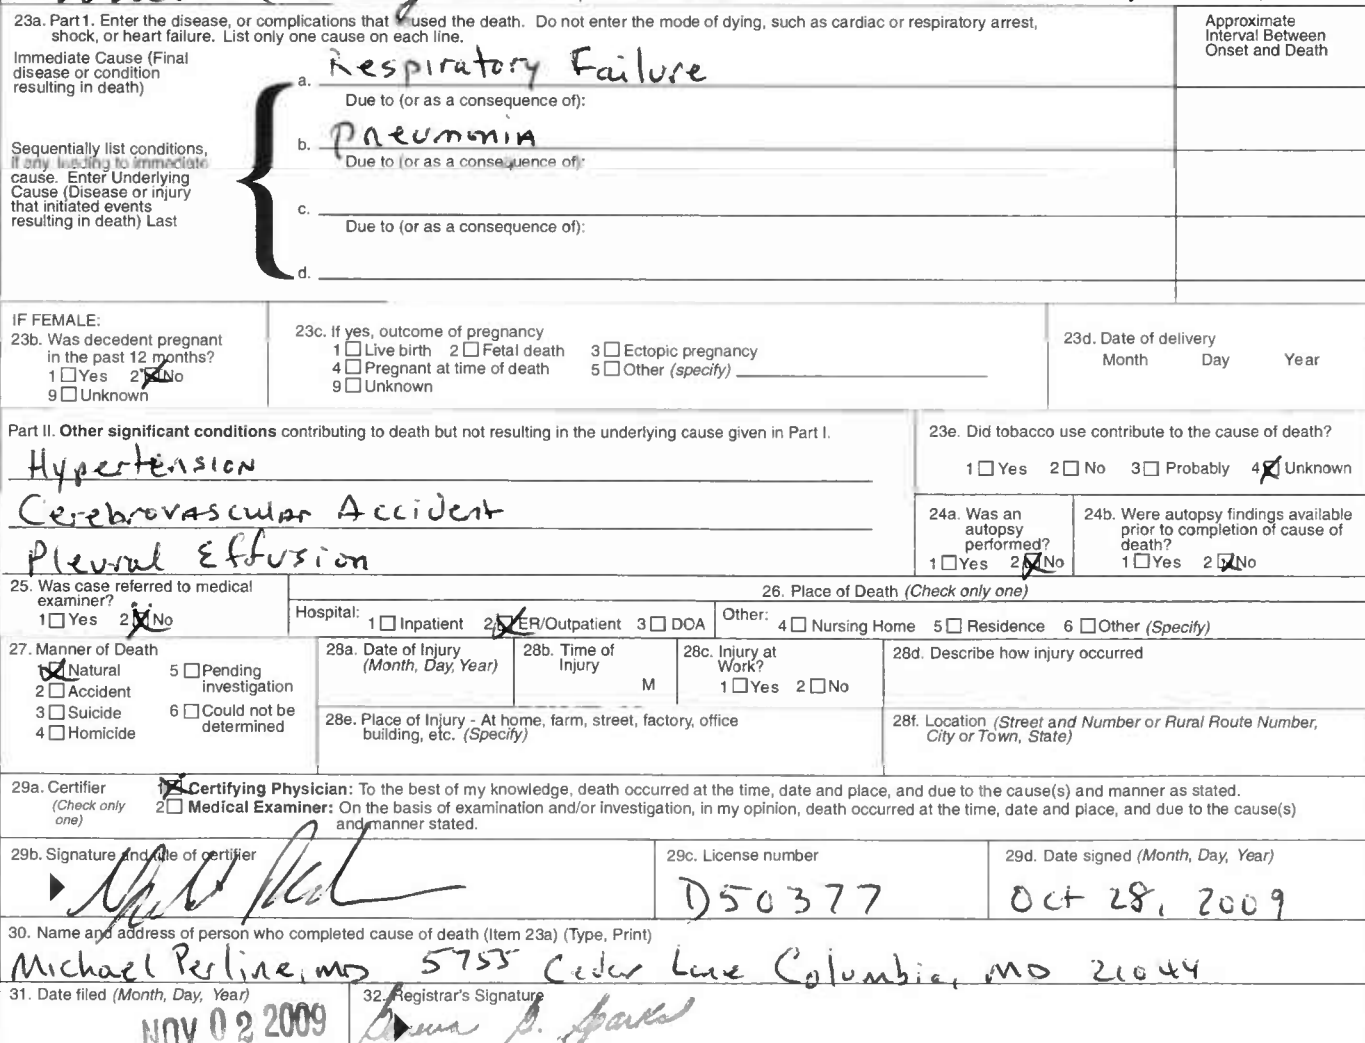 23a. Part 1. Enter the disease, or complications that used the death. Do not enter the mode of dying, such as cardiac or respiratory arrest,
shock, or heart failure. List only one cause on each line.
Approximate
Interval Between
Onset and Death
Immediate Cause (Final
disease or condition
resulting in death)
a. Respiratory Failure
Due to (or as a consequence of):
Sequentially list conditions,
if any leading to immediate
cause. Enter Underlying
Cause (Disease or injury
that initiated events
resulting in death) Last
b. Pneumonia
Due to (or as a consequence of):
c.
Due to (or as a consequence of):
d.
IF FEMALE:
23b. Was decedent pregnant
in the past 12 months?
1 ☐ Yes 2 ☒ No
9 ☐ Unknown
23c. If yes, outcome of pregnancy
1 ☐ Live birth 2 ☐ Fetal death 3 ☐ Ectopic pregnancy
4 ☐ Pregnant at time of death 5 ☐ Other (specify)
9 ☐ Unknown
23d. Date of delivery
Month Day Year
Part II. Other significant conditions contributing to death but not resulting in the underlying cause given in Part I.
Hypertension
Cerebrovascular Accident
Pleural Effusion
23e. Did tobacco use contribute to the cause of death?
1 ☐ Yes 2 ☐ No 3 ☐ Probably 4 ☒ Unknown
24a. Was an
autopsy
performed?
1 ☐ Yes 2 ☒ No
24b. Were autopsy findings available
prior to completion of cause of
death?
1 ☐ Yes 2 ☒ No
25. Was case referred to medical
examiner?
1 ☐ Yes 2 ☒ No
26. Place of Death (Check only one)
Hospital: 1 ☐ Inpatient 2 ☒ ER/Outpatient 3 ☐ DOA Other: 4 ☐ Nursing Home 5 ☐ Residence 6 ☐ Other (Specify)
27. Manner of Death
1 ☒ Natural 5 ☐ Pending
investigation
2 ☐ Accident
3 ☐ Suicide 6 ☐ Could not be
determined
4 ☐ Homicide
28a. Date of Injury
(Month, Day, Year)
28b. Time of
Injury
M
28c. Injury at
Work?
1 ☐ Yes 2 ☐ No
28d. Describe how injury occurred
28e. Place of Injury - At home, farm, street, factory, office
building, etc. (Specify)
28f. Location (Street and Number or Rural Route Number,
City or Town, State)
29a. Certifier
(Check only
one)
1 ☒ Certifying Physician: To the best of my knowledge, death occurred at the time, date and place, and due to the cause(s) and manner as stated.
2 ☐ Medical Examiner: On the basis of examination and/or investigation, in my opinion, death occurred at the time, date and place, and due to the cause(s)
and manner stated.
29b. Signature and title of certifier
29c. License number
D50377
29d. Date signed (Month, Day, Year)
Oct 28, 2009
30. Name and address of person who completed cause of death (Item 23a) (Type, Print)
Michael Perline, MD 5755 Cedar Lane Columbia, MD 21044
31. Date filed (Month, Day, Year)
NOV 02 2009
32. Registrar's Signature
S. Sparks